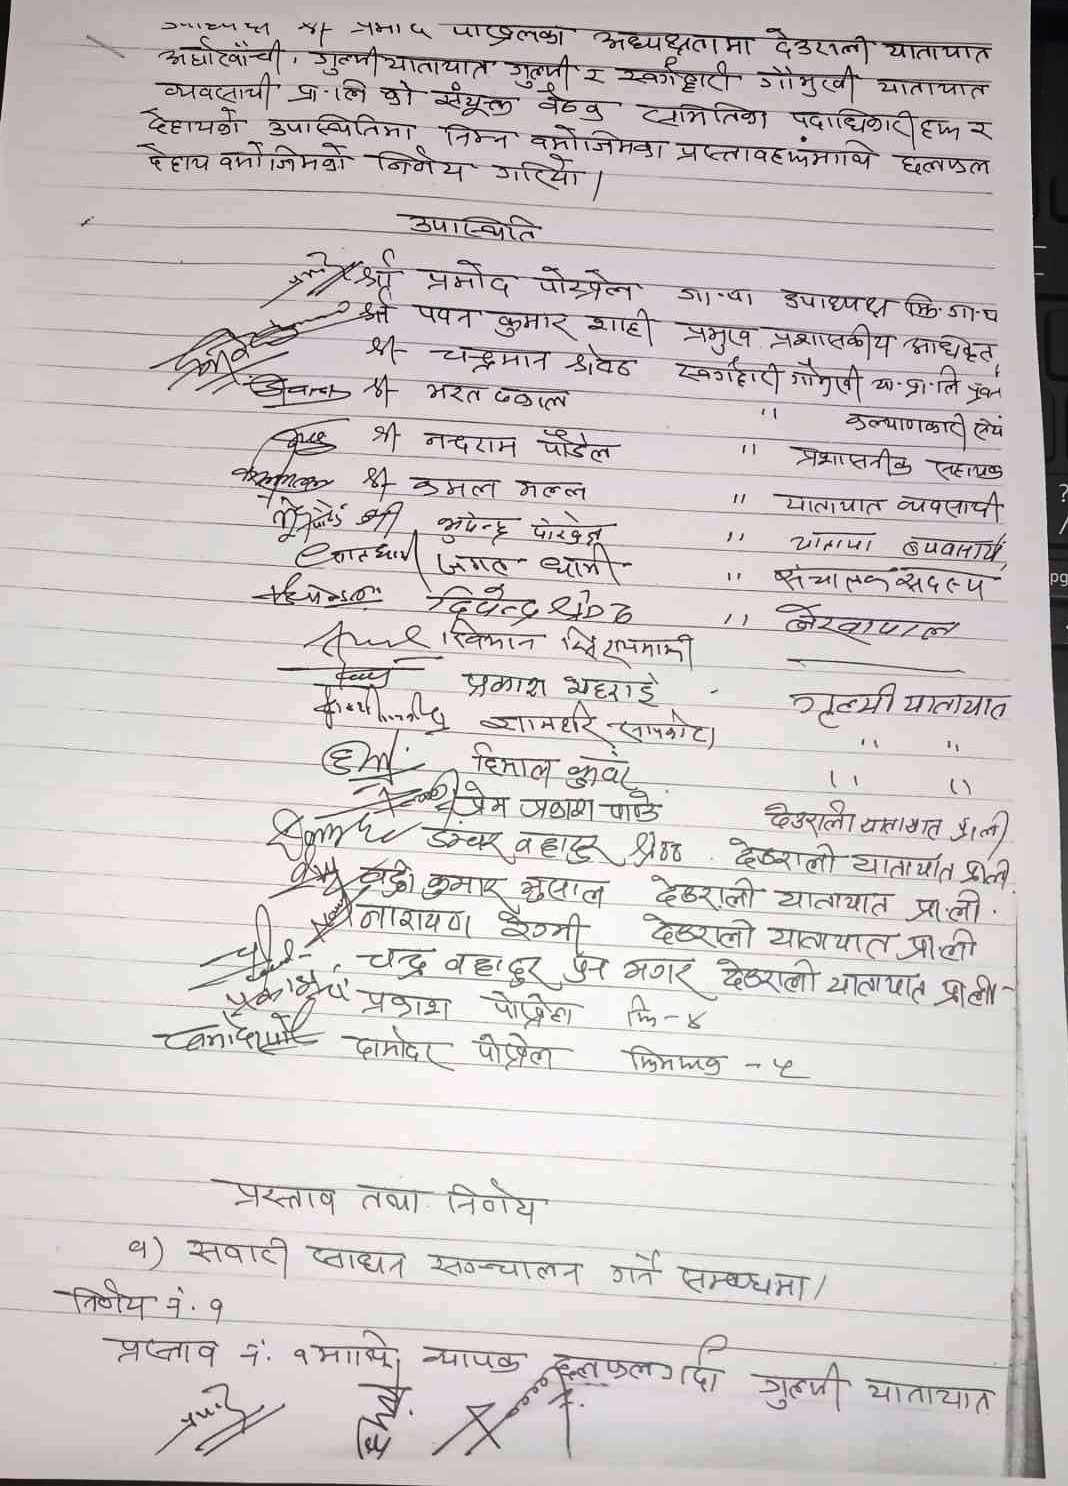 उपाध्यक्ष श्री प्रमोद पोख्रेलका अध्यक्षतामा देउराली यातायात
अर्घाखाँची, गुल्मी यातायात गुल्मी र स्वर्गद्वारी गौमुखी यातायात
व्यवसायी प्रा.लि को संयुक्त बैठक समितिका पदाधिकारीहरू र
देहायको उपास्थितिमा निम्न बमोजिमका प्रस्तावहरूमाथि छलफल
देहाय बमोजिमको निर्णय गरियो।
उपास्थिति
श्री प्रमोद पोख्रेल गा.पा उपाध्यक्ष झि.गा.प
श्री पवन कुमार शाही प्रमुख प्रशासकीय अधिकृत
श्री चन्द्रमान श्रेष्ठ स्वर्गद्वारी गौमुखी या.प्रा.लि
श्री भरत ढकाल "
श्री नन्दराम पौडेल " प्रशासनीक सहायक
श्री कमल मल्ल " यातायात व्यवसायी
श्री भुपेन्द्र पोख्रेल "
जगत थामी " संचालक सदस्य
दिपेन्द्र श्रेष्ठ " लेखापाल
खिमान
प्रकाश भट्टराई गुल्मी यातायात
श्यामहरि सापकोटा " "
हिमाल कुवर " "
प्रेम प्रकाश पाण्डे देउराली यातायात प्रा.ली
डम्बर बहादुर श्रेष्ठ देउराली यातायात प्रा.ली
कुमार भुसाल देउराली यातायात प्रा.ली.
नारायण रेग्मी देउराली यातायात प्रा.ली
चन्द्र बहादुर पुन मगर देउराली यातायात प्रा.ली
प्रकाश पोख्रेल झि-४
दामोदर पोख्रेल झिमरूक - ५
प्रस्ताव तथा निर्णय
१) सवारी साधन सञ्चालन गर्ने सम्बन्धमा।
निर्णय नं. १
प्रस्ताव नं. १माथि व्यापक छलफल गर्दा गुल्मी यातायात